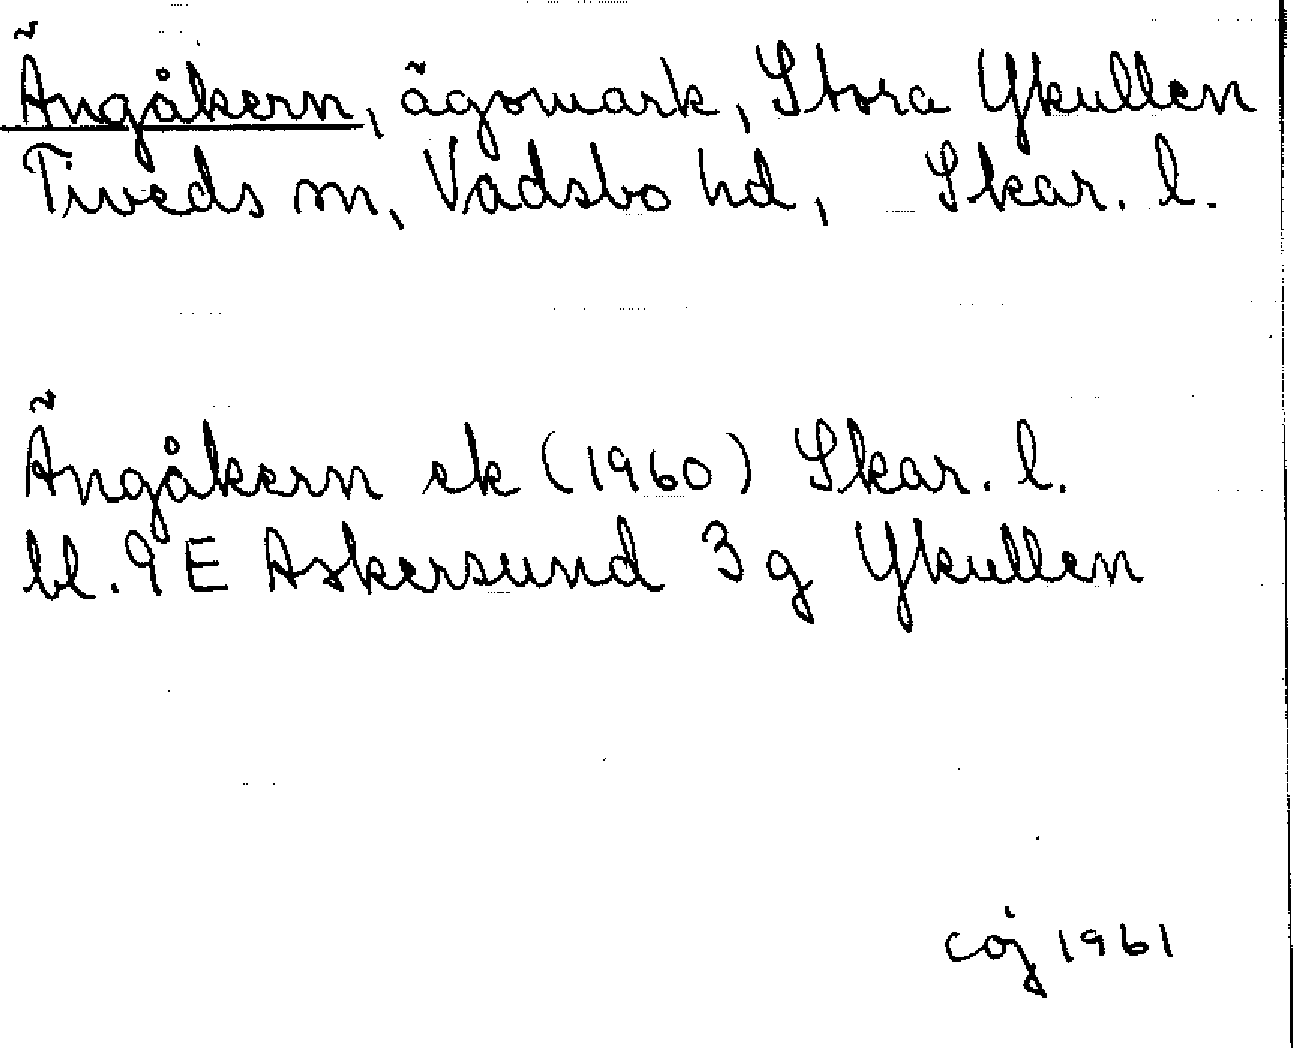 Ängåkern, ägomark, Stora Ykullen
Tiveds sn, Vadsbo hd, Skar. l.
Ängåkern ek (1960) Skar. l.
bl. 9 E Askersund 3 g Ykullen
coj 1961